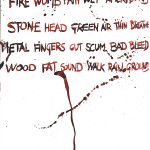 FIRE WOMB
STONE HEAD GREEN AIR THIN
METAL FINGERS GUT SCUM BAD BLEED
WOOD FAT SOUND WALK RAIN GROUND